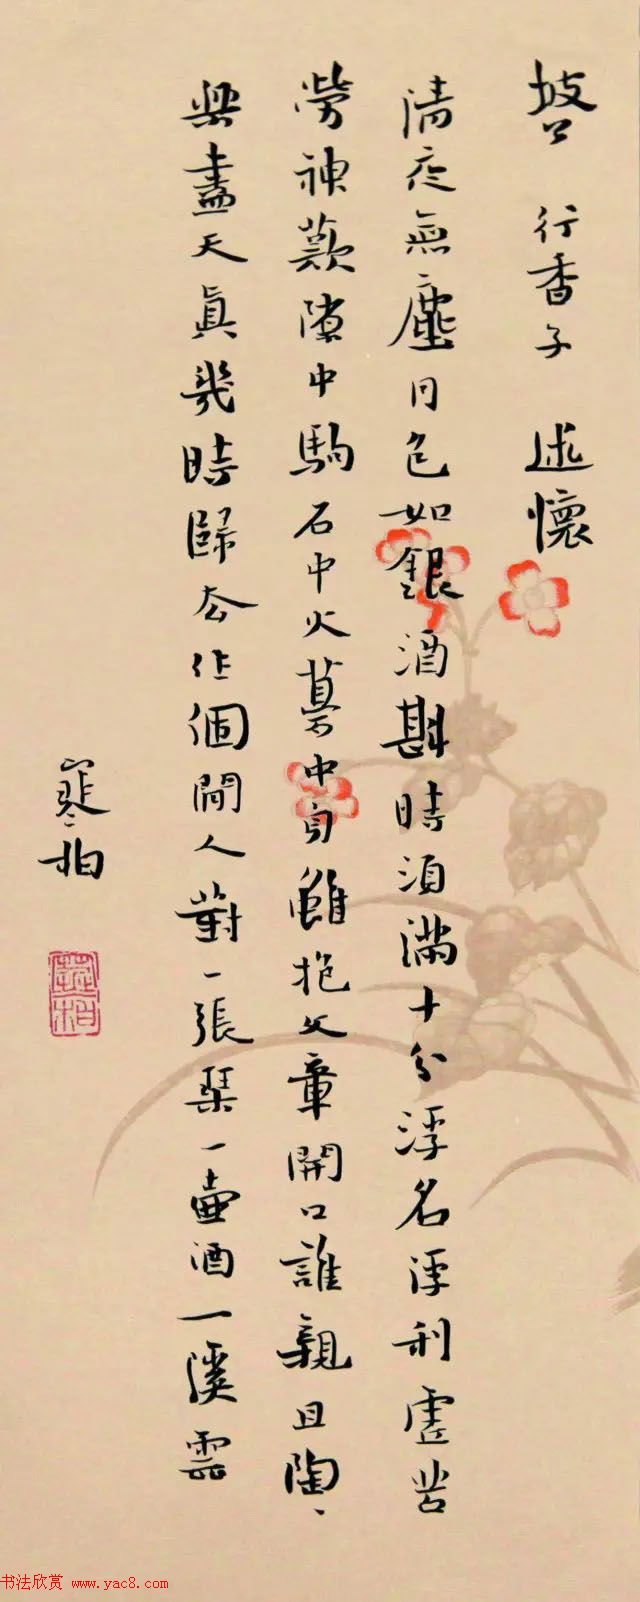 坡公 行香子 述懷
清夜無塵月色如銀酒斟時須滿十分浮名浮利虛苦
勞神歎隙中駒石中火夢中身雖抱文章開口誰親且陶、
樂盡天眞幾時歸去作個閒人對一張琴一壺酒一溪雲
寒柏
书法欣赏 www.yac8.com